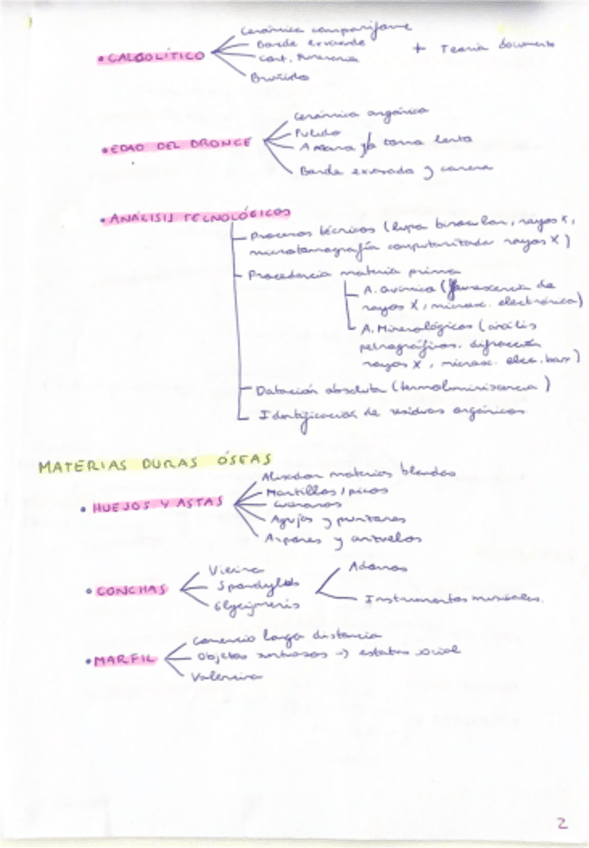 • CALCOLÍTICO
Cerámica campaniforme
Borde exvasado
Cont. Funeraria
Bruñido
+ Teoría documento
• EDAD DEL BRONCE
Cerámica orgánica
Pulido
A mano y/o torno lento
Borde exvasado y carena
• ANÁLISIS TECNOLÓGICOS
Procesos técnicos (lupa binocular, rayos X,
microtomografía computarizada rayos X)
Procedencia materia prima
A. Química (fluorescencia de
rayos X, microsc. electrónica)
A. Mineralógicos (análisis
petrográficos, difracción
rayos X, microsc. elec. barr)
Datación absoluta (termoluminiscencia)
Identificación de residuos orgánicos
MATERIAS DURAS ÓSEAS
• HUESOS Y ASTAS
Alisador materias blandas
Martillos / picos
Agujas y punzones
Arpones y anzuelos
• CONCHAS
Vieira
Spondylus
Glycymeris
Adornos
Instrumentos musicales.
• MARFIL
Comercio larga distancia
Objetos suntuosos → estatus social
Valencina
2